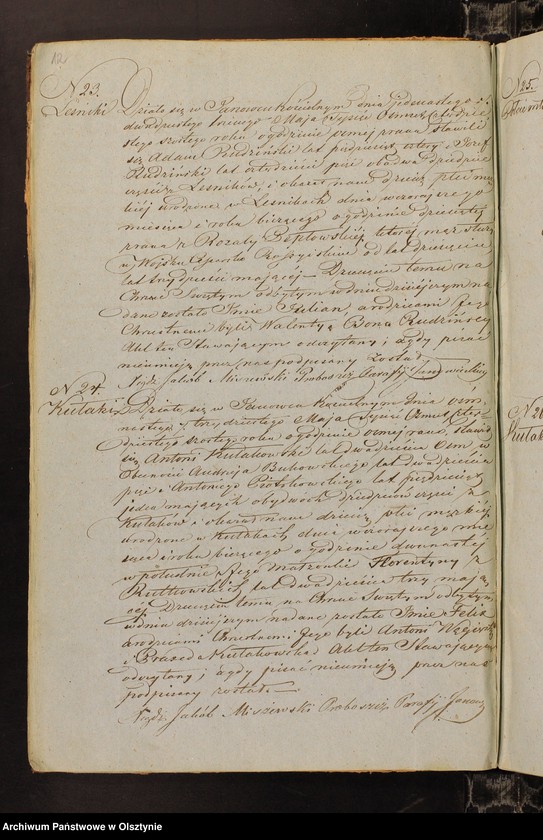 12
N 23.
Leśniki
Działo się w Janowcu Kościelnym dnia jedenastego i
dwudziestego trzeciego Maja Tysiąc Ośmset Czterdzie
stego szóstego roku o godzinie ósmej z rana stawili
się Adam Rudziński lat pięćdziesiąt i Józef
Rudziński lat czterdzieści pięć obadwa Dziedzice
części z Leśników, i okazali nam dziecię płci mę
skiej urodzone w Leśnikach dnia wczorajszego
miesiąca i roku bieżącego o godzinie dziewiątej
z rana z Rozalij której mąż służy
w Wojsku Cesarsko Rossyjskim od lat dziesięciu
lat trzydzieści mającej. Dziecięciu temu na
Chrzcie Świętym odbytym w dniu dzisiejszym na
dane zostało Imie Julian, a rodzicami jego
Chrzestnemi byli Walenty Rudzińscy
Akt ten Stawającym odczytany i gdy pisać
nieumieją przez nas podpisany został.
Xiądz Jakób Miszewski Proboszcz Parafij
N 24.
Kutaki
Działo się w Janowcu Kościelnym Dnia ośm
nastego i trzydziestego Maja Tysiąc Ośmset Czter
dziestego szóstego roku o godzinie ósmej z rana, stawił
się Antoni Kułakowski lat dwadzieścia ośm, w
Obecności Andrzeja Bukowskiego lat dwadzieścia
pięć i Antoniego Piotrkowskiego lat pięćdziesiąt
jeden mających obydwóch dziedziców części z
Kutaków i okazał nam dziecię płci męzkiej
urodzone w Kutakach dnia wczorajszego mie
siąca i roku bieżącego o godzinie dwunastej
w południe z Jego Małżonki Florentyny z
Rutkowskich lat dwadzieścia trzy mają
cej. Dziecięciu temu na Chrzcie Świętym odbytym
w dniu dzisiejszym nadane zostało Imie Felix
a rodzicami Chrzestnemi Jego byli Antoni
i Kułakowska Akt ten Stawającym
odczytany i gdy pisać nieumieją przez nas
podpisany został.
Xiądz Jakób Miszewski Proboszcz Parafij
N 25.
N 26
Kutak
Archiwum Państwowe w Olsztynie